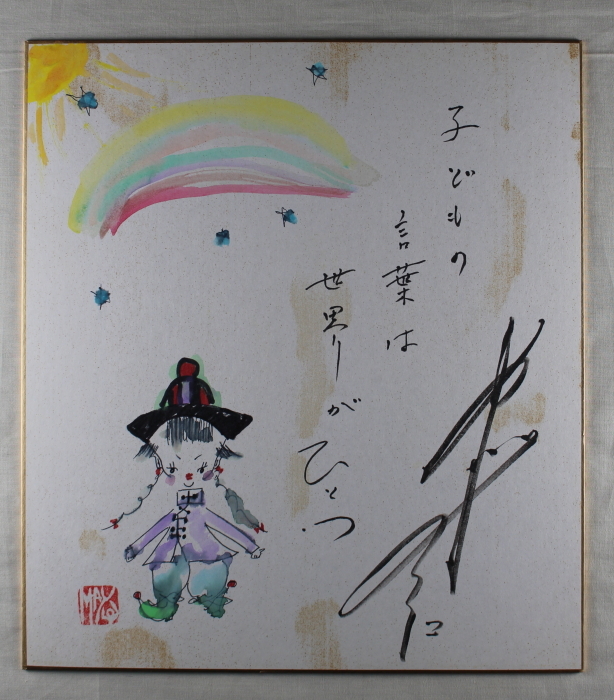 子どもの
言葉は
世界が
ひとつ